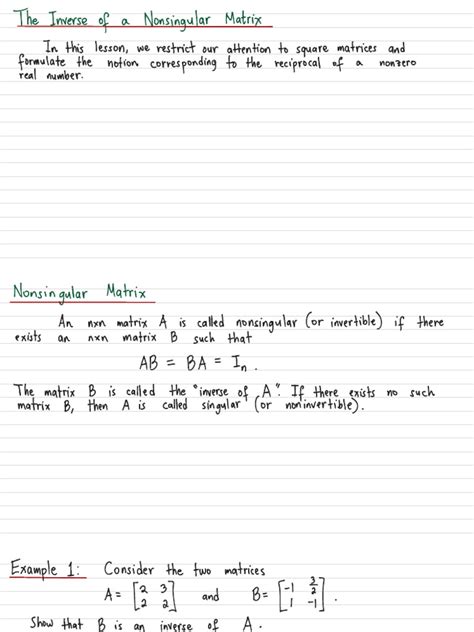 The Inverse of a Nonsingular Matrix
In this lesson, we restrict our attention to square matrices and
formulate the notion corresponding to the reciprocal of a nonzero
real number.
Nonsingular Matrix
An nxn matrix A is called nonsingular (or invertible) if there
exists an nxn matrix B such that
AB = BA = Iₙ.
The matrix B is called the "inverse of A". If there exists no such
matrix B, then A is called singular (or noninvertible).
Example 1: Consider the two matrices
A = [2 3; 2 2] and B = [-1 3/2; 1 -1].
Show that B is an inverse of A.